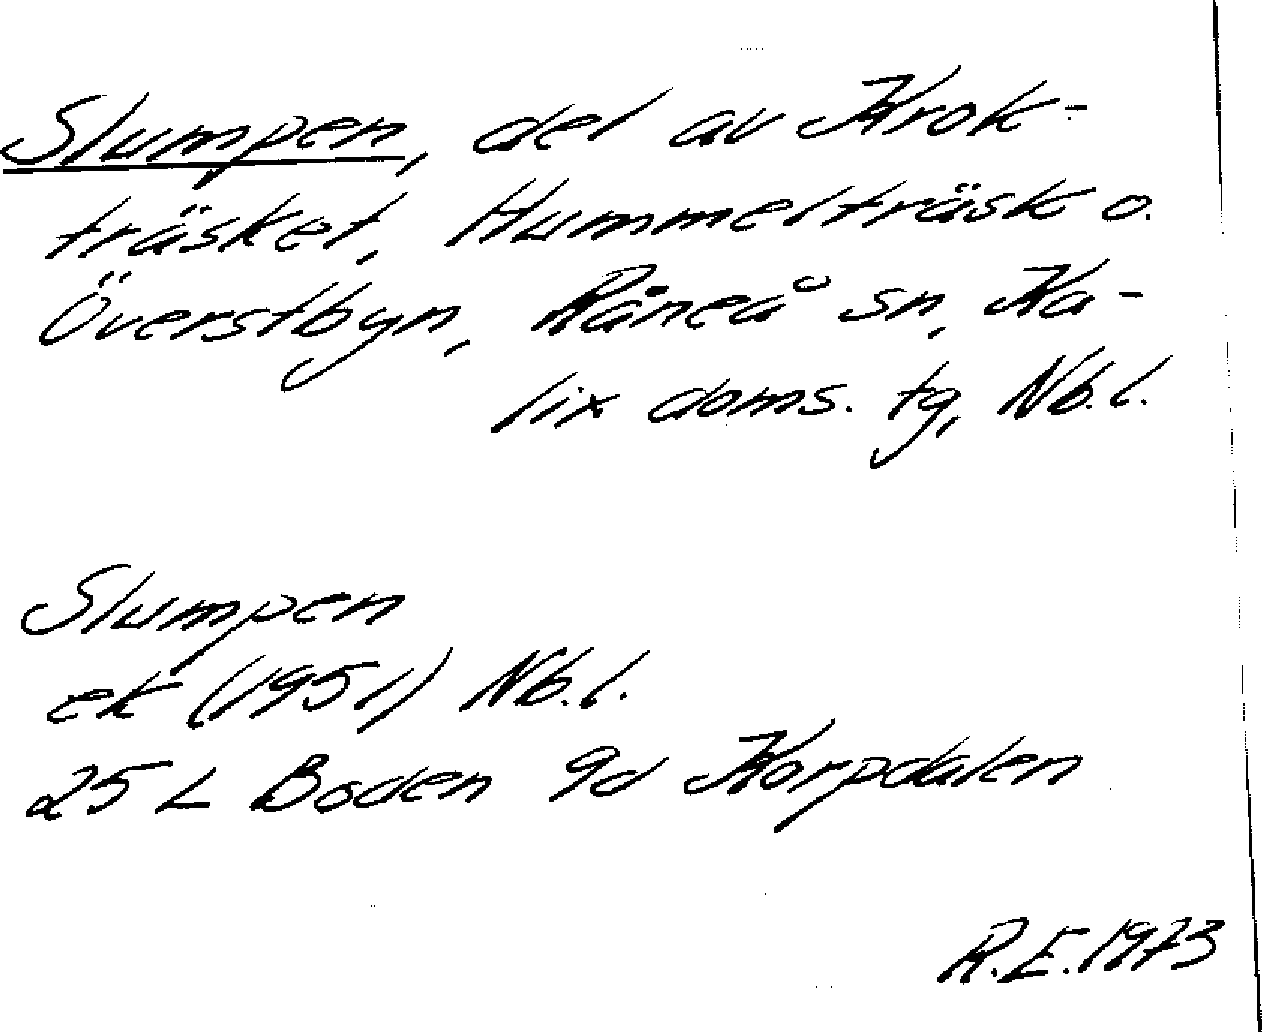 Slumpen, del av Krok-
träsket, Hummelträsk o.
Överstbyn, Råneå sn, Ka-
lix doms. tg, Nb.l.
Slumpen
ek (1951) Nb.l.
25 L Boden 9d Korpdalen
R.E. 1973